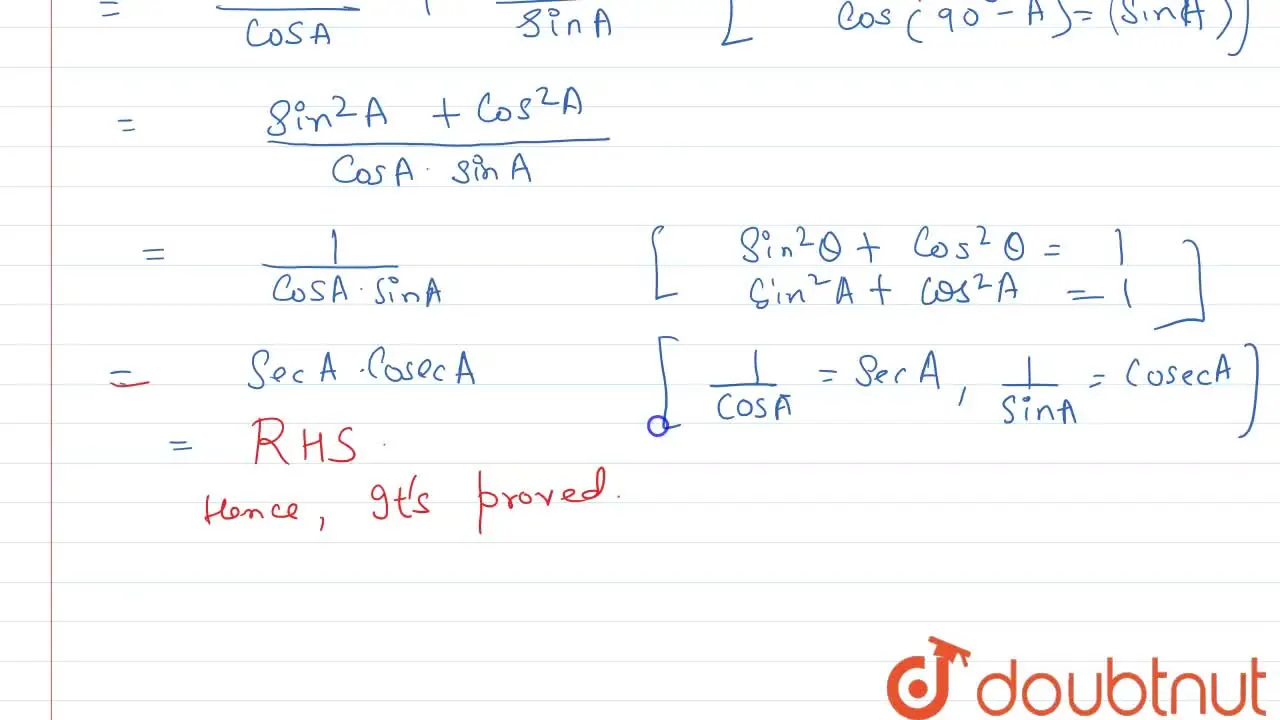 = cosA + sinA [ cos(90°-A) = (sinA) ]
= sin²A + cos²A
cosA · sinA
= 1 [ sin²θ + cos²θ = 1
cosA · sinA sin²A + cos²A = 1 ]
= secA · cosecA [ 1/cosA = secA, 1/sinA = cosecA ]
= RHS.
Hence, It's proved.
doubtnut